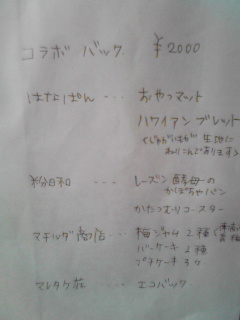 コラボ バック ¥2000
はなぱん ・・・ おやつマット
ハワイアンブレット
生地に
ねりこんであります
粉日和 ---- レーズン酵母の
かぼちゃパン
かたつむりコースター
マチルダ商店・・・ 梅ジャム 2種
バーケーキ 2種
プチケーキ 3ヶ
マレタク荘 ・・・ エコバック